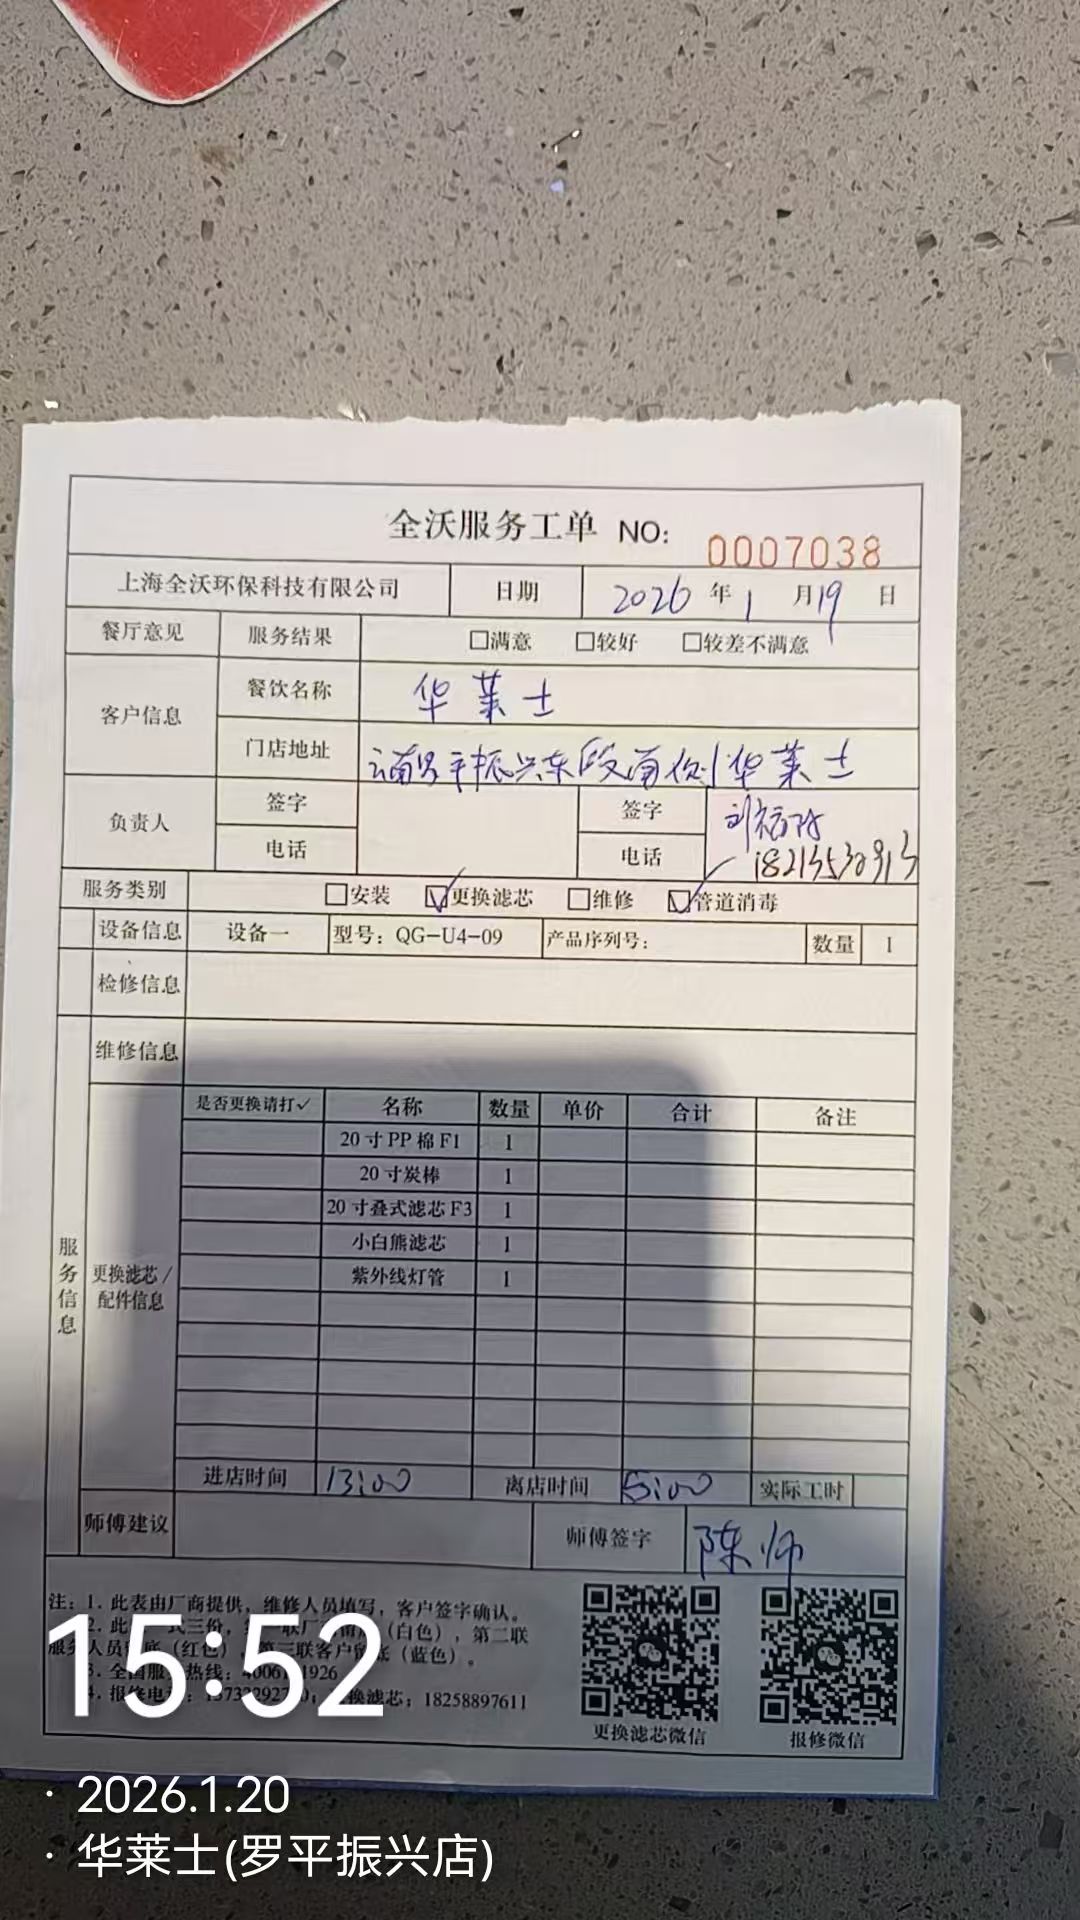 全沃服务工单 NO: 0007038
上海全沃环保科技有限公司 日期 2026 年 1 月 19 日
餐厅意见 服务结果 □满意 □较好 □较差不满意
客户信息 餐饮名称 华莱士
门店地址 云南罗平振兴东段南侧华莱士
负责人 签字 签字 刘
电话 电话
服务类别 □安装 ☑更换滤芯 □维修 ☑管道消毒
设备信息 设备一 型号：QG-U4-09 产品序列号： 数量 1
检修信息
维修信息
服务信息
更换滤芯/
配件信息
是否更换请打✓ 名称 数量 单价 合计 备注
20寸PP棉F1 1
20寸炭棒 1
20寸叠式滤芯F3 1
小白熊滤芯 1
紫外线灯管 1
进店时间 13:00 离店时间 15:00 实际工时
师傅建议 师傅签字 陈师
注：1. 此表由厂商提供，维修人员填写，客户签字确认。
2. 此 式三份， 联厂 （白色），第二联
服务人员 底（红色），第三联客户留底（蓝色）。
3. 全国服 热线：4006 1926
4. 报修电 换滤芯：18258897611
更换滤芯微信 报修微信
15:52
· 2026.1.20
· 华莱士(罗平振兴店)